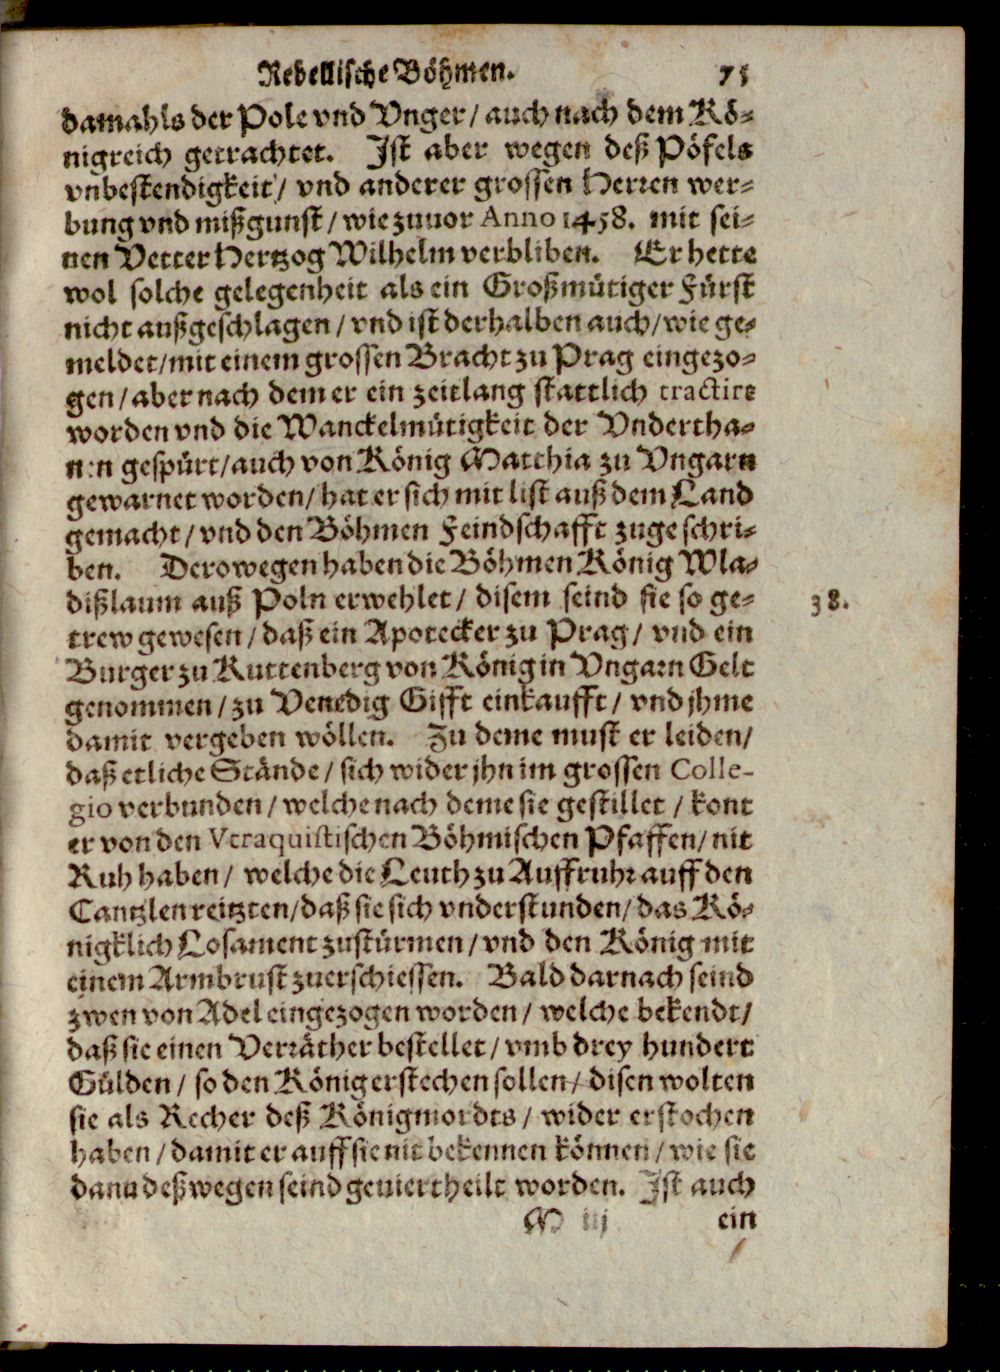 Rebellische Böhmen. 75
damahls der Pole vnd Vnger / auch nach dem Kö-
nigreich getrachtet. Jst aber wegen deß Pöfels
vnbestendigkeit / vnd anderer grossen Herren wer-
bung vnd mißgunst / wie zuuor Anno 1458. mit sei-
nen Vetter Hertzog Wilhelm verbliben. Er hette
wol solche gelegenheit als ein Großmütiger Fürst
nicht außgeschlagen / vnd ist derhalben auch / wie ge-
meldet / mit einem grossen Bracht zu Prag eingezo-
gen / aber nach dem er ein zeitlang stattlich tractirt
worden vnd die Wanckelmütigkeit der Vndertha-
nen gespürt / auch von König Matthia zu Vngarn
gewarnet worden / hat er sich mit list auß dem Land
gemacht / vnd den Böhmen Feindschafft zugeschri-
ben. Derowegen haben die Böhmen König Wla-
dißlaum auß Poln erwehlet / disem seind sie so ge- 38.
trew gewesen / daß ein Apotecker zu Prag / vnd ein
Burger zu Kuttenberg von König in Vngarn Gelt
genommen / zu Venedig Gifft einkaufft / vnd jhme
damit vergeben wöllen. Zu deme must er leiden /
daß etliche Stände / sich wider jhn im grossen Colle-
gio verbunden / welche nach deme sie gestillet / kont
er von den Vtraquistischen Böhmischen Pfaffen / nit
Ruh haben / welche die Leuth zu Auffruhr auff den
Cantzlen reitzten / daß sie sich vnderstunden / das Kö-
nigklich Losament zustürmen / vnd den König mit
einem Armbrust zuerschiessen. Bald darnach seind
zwen von Adel eingezogen worden / welche bekendt /
daß sie einen Verräther bestellet / vmb drey hundert
Gülden / so den König erstechen sollen / disen wolten
sie als Recher deß Königmordts / wider erstochen
haben / damit er auff sie nit bekennen können / wie sie
dann deßwegen seind geuiertheilt worden. Jst auch
M iij ein